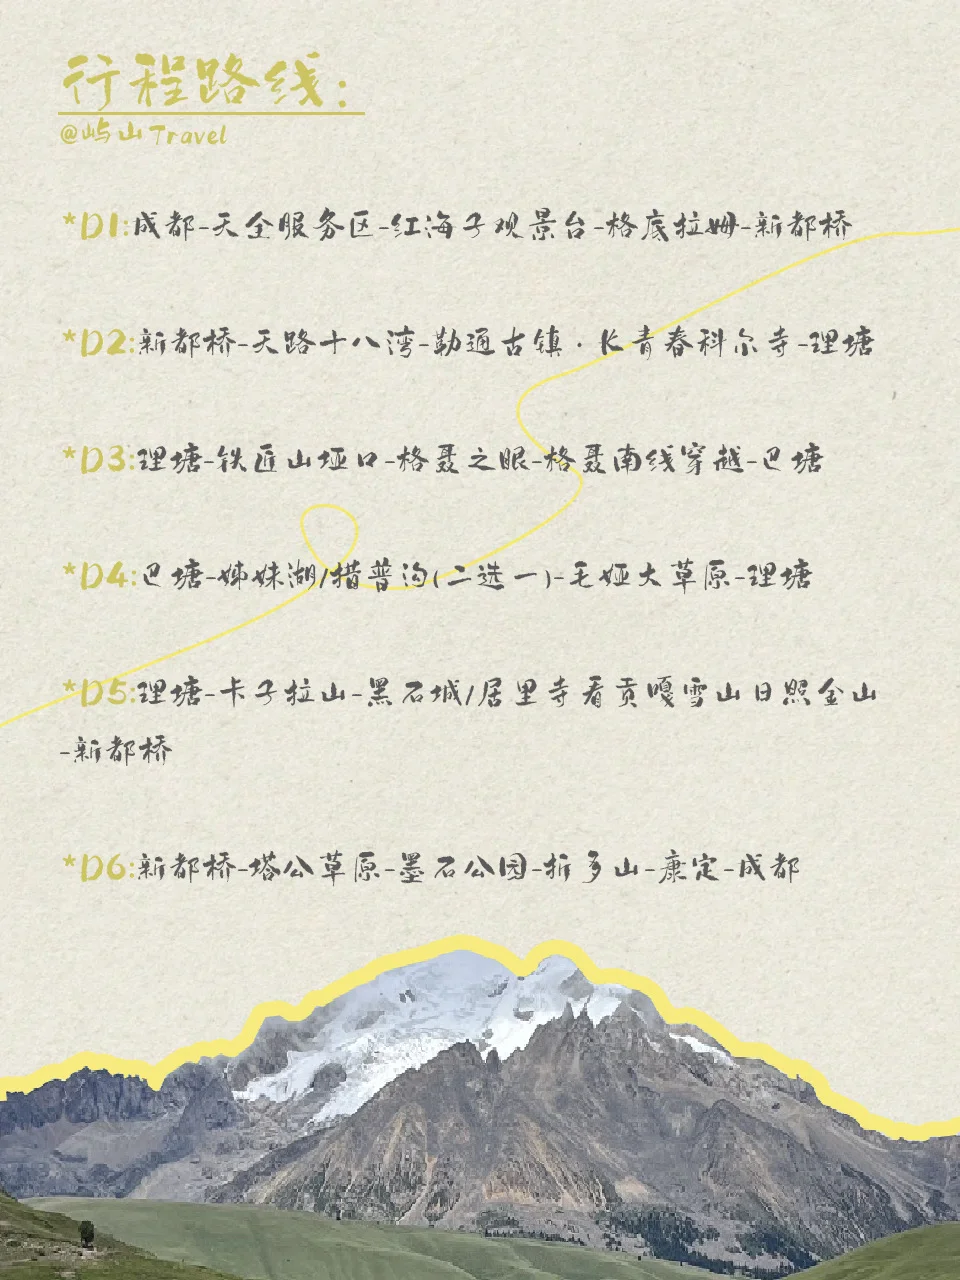 行程路线:
@屿山 Travel
*D1:成都-天全服务区-红海子观景台-格底拉姆-新都桥
*D2:新都桥-天路十八湾-勒通古镇·长青春科尔寺-理塘
*D3:理塘-铁匠山垭口-格聂之眼-格聂南线穿越-巴塘
*D4:巴塘-姊妹湖/措普沟(二选一)-毛娅大草原-理塘
*D5:理塘-卡子拉山-黑石城/居里寺看贡嘎雪山日照金山
-新都桥
*D6:新都桥-塔公草原-墨石公园-折多山-康定-成都